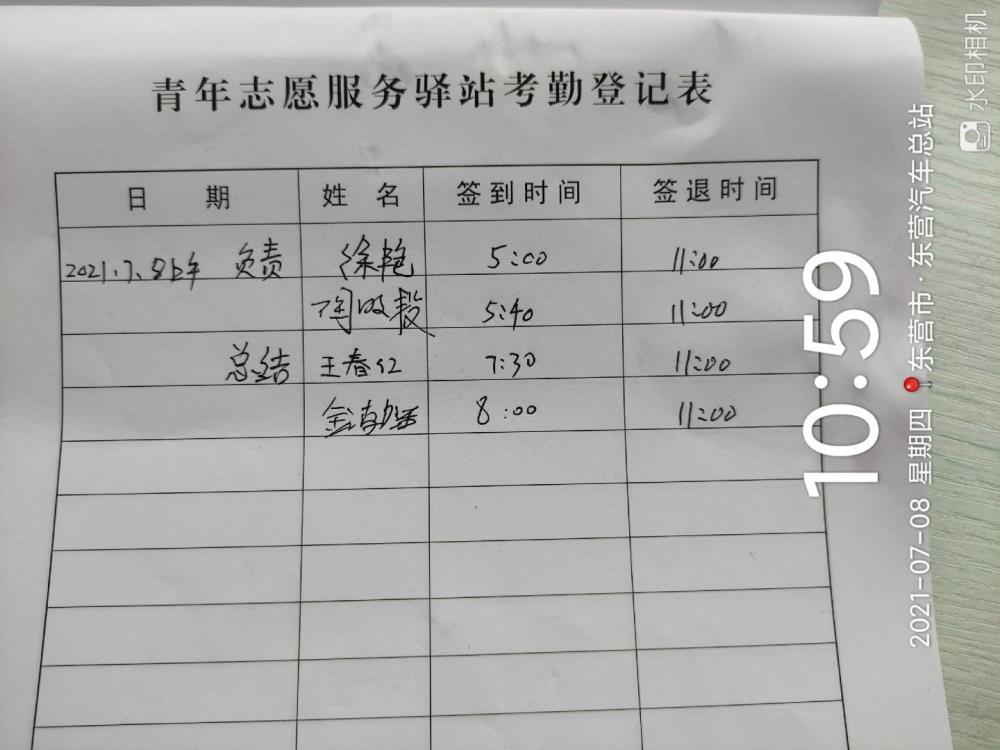 青年志愿服务驿站考勤登记表
日 期 姓 名 签到时间 签退时间
2021.7.8上午 负责 徐艳 5:00 11:00
5:40 11:00
总结 王春红 7:30 11:00
8:00 11:00
10:59
2021-07-08 星期四 东营市·东营汽车总站
水印相机